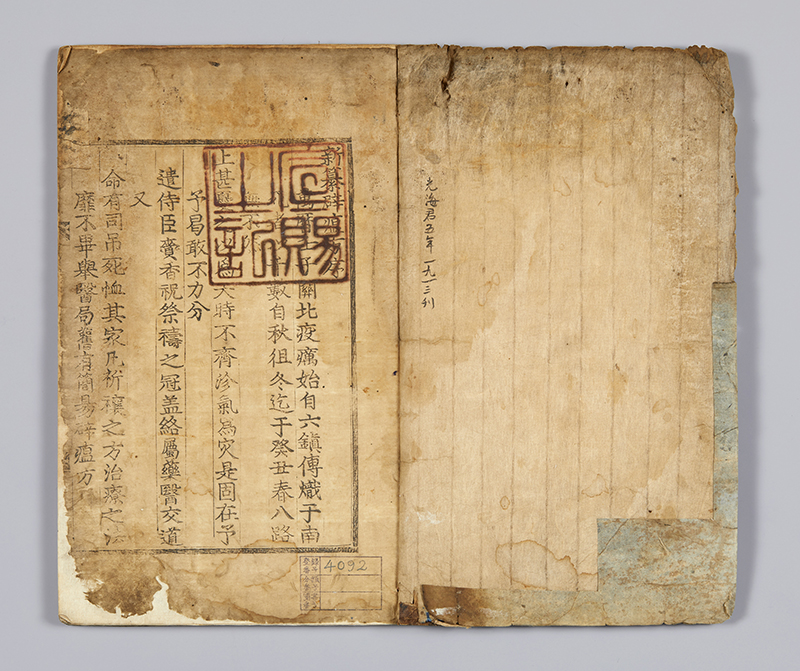 光海君五年 一九一三刊
新纂辟瘟方序
關北疫癘始自六鎭傳熾于南
數自秋徂冬迄于癸丑春八路
上甚天時不齊沴氣爲灾是固在予
予曷敢不力分
遣侍臣賫香祝祭禱之冠盖絡屬藥醫交道
又
命有司吊死恤其家凡祈禳之方治療之法
靡不畢舉醫局舊有簡易辟瘟方
宣賜
之記
4092